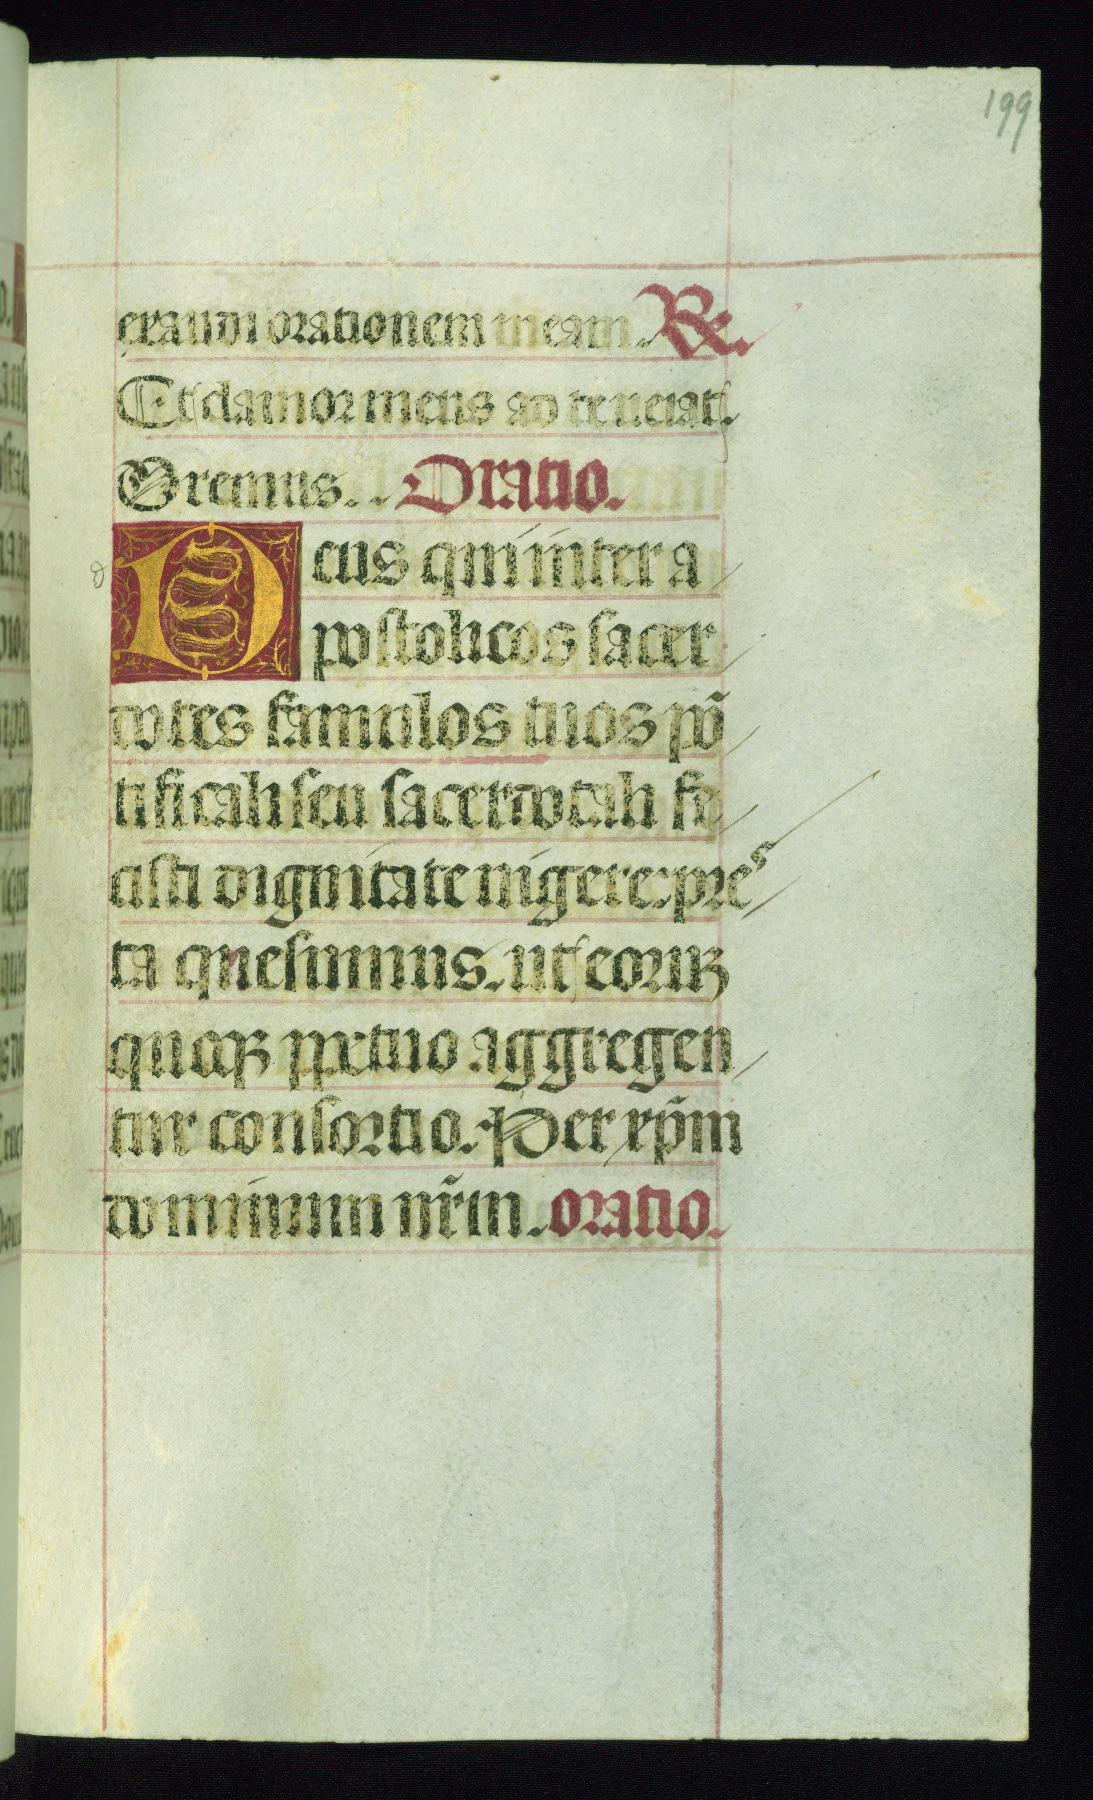 199
exaudi orationem meam. R&.
Et clamor meus ad te veniat.
Oremus. Oratio.
Deus qui inter a
postolicos sacer
dotes famulos tuos põ
tificali seu sacerdotali fe
cisti dignitate vigere: pres
ta quesumus. ut eoruʒ
quoqʒ ꝑpetuo aggregen
tur consortio. Per xp̃m
dominum nr̃m. oratio.